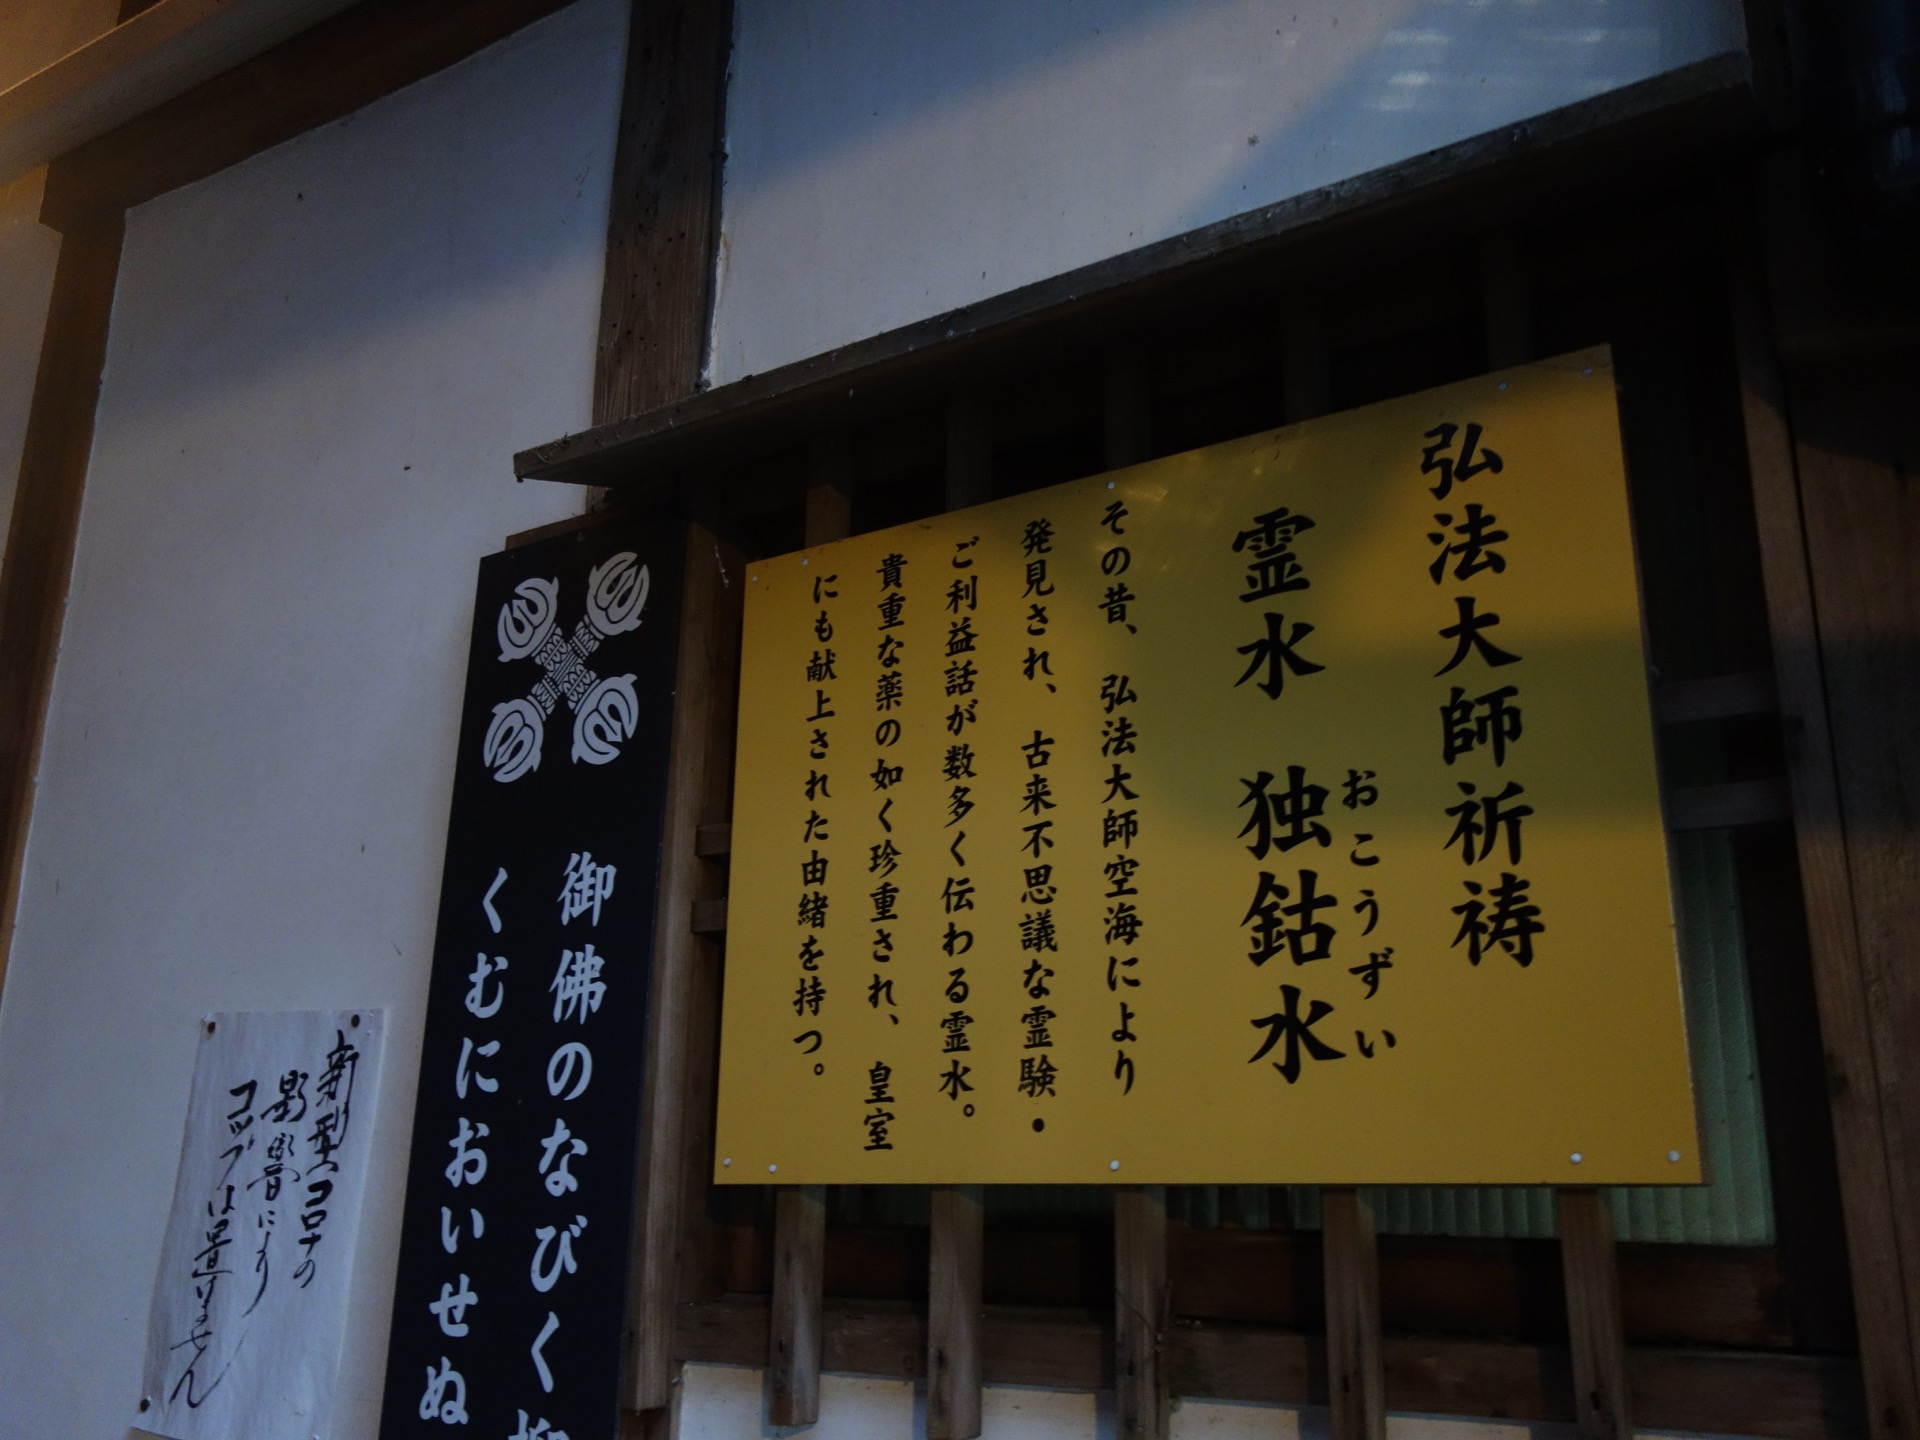 弘法大師祈祷
霊水 独鈷水
おこうずい
その昔、弘法大師空海により
発見され、古来不思議な霊験・
ご利益話が数多く伝わる霊水。
貴重な薬の如く珍重され、皇室
にも献上された由緒を持つ。
御佛のなびく柳
くむにおいせぬ
新型コロナの
影響により
コップは置けません